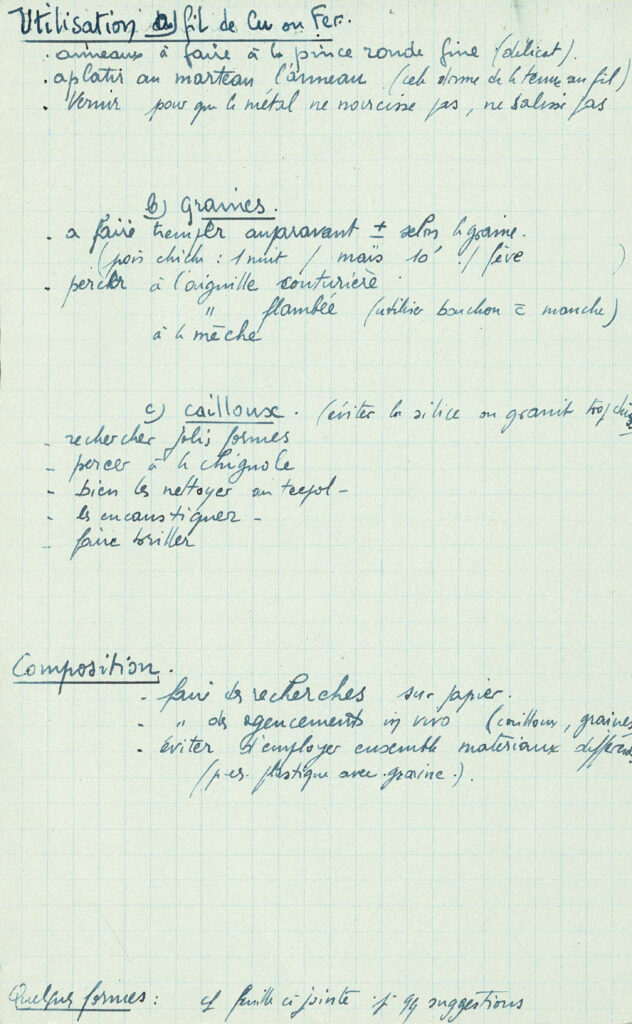 Utilisation du fil de Cu ou Fer.
. anneaux à faire à la pince ronde fine (délicat).
. aplatir au marteau l'anneau (cela donne de la tenue au fil)
. Vernir pour que le métal ne noircisse pas, ne salisse pas
b) graines.
. à faire tremper auparavant ± selon la graine.
(pois chiche : 1 nuit / maïs 10' / fève )
. percer à l'aiguille couturière
" flambée (utiliser bouchon = manche)
à la mèche
c) cailloux. (éviter la silice ou granit trop
- rechercher jolis formes
- percer à la chignole
- bien les nettoyer au teepol -
- les encaustiquer -
- faire briller
Composition.
- faire des recherches sur papier.
- " des agencements in vivo (cailloux, graines
. éviter d'employer ensemble matériaux
(p. ex. plastique avec graine.).
Quelques formes : cf feuille ci jointe qq suggestions